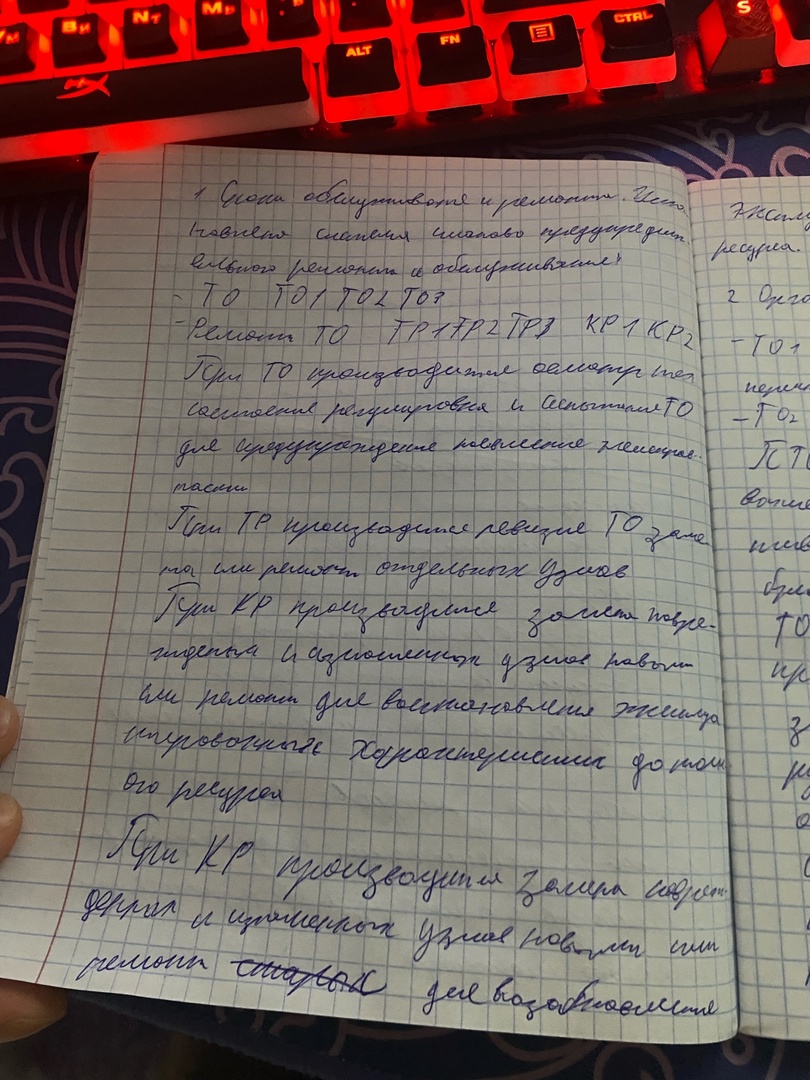 Ми
Ви
Nт
Мь
ALT
FN
CTRL
S
1 Сроки обслуживание и ремонта. Уста
новлена система планово предупредит
ельного ремонта и обслуживание:
- ТО ТО1 ТО2 ТО3
- Ремонт ТО ТР1 ТР2 ТР3 КР1 КР2
При ТО производится осмотр тех
состояние регулировка и испытание ТО
для предупреждение появление неисправ-
насти
При ТР производится ревизие ТО заме
на или ремонт отдельных узлов
При КР производится замена повре-
жденых и изношенных узлов новыми
или ремонт для восстановления эксплуа
тационных характеристик до полн
ого ресурса
При КР производится замена повреж-
денных и изношенных узлов новыми или
ремонт старых для возобновление
Эксплу
ресурса.
2 Орга
- ТО1
- ТО2
ПТО
ТО
пр